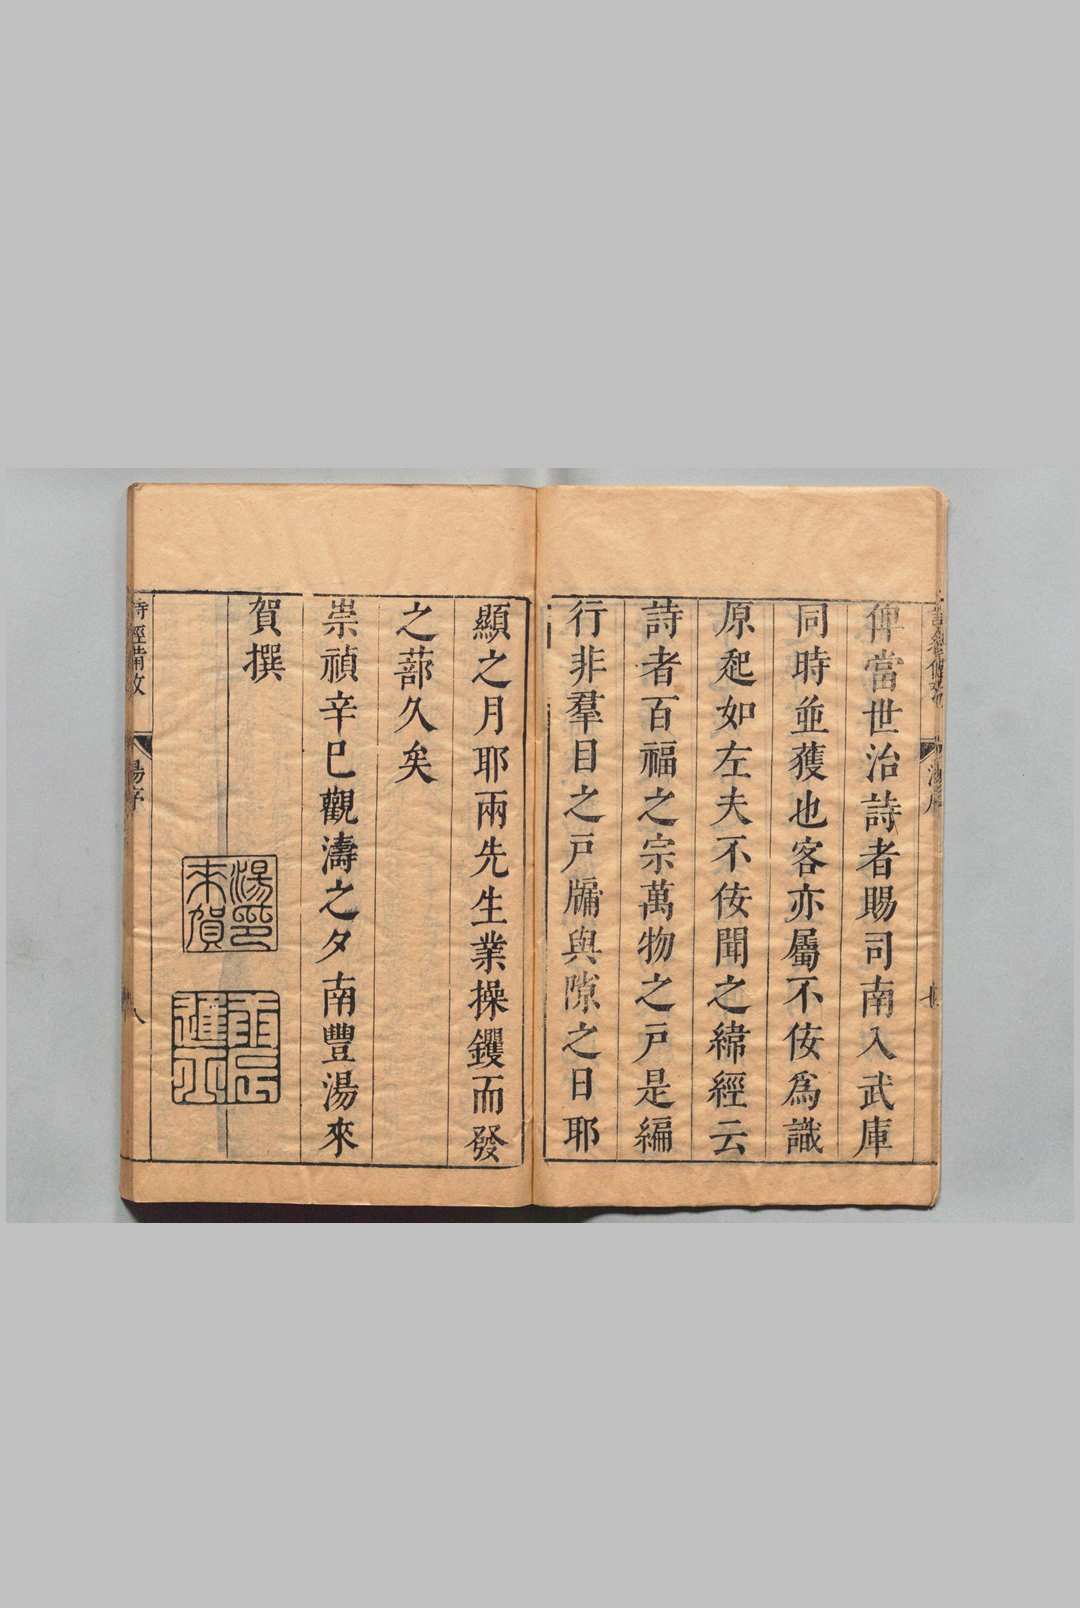 俾當世治詩者賜司南入武庫
同時並獲也客亦屬不佞爲識
原起如左夫不佞聞之緯經云
詩者百福之宗萬物之戸是編
行非羣目之戸牖與隙之日耶
顯之月耶兩先生業操钁而發
之蔀久矣
崇禎辛巳觀濤之夕南豐湯來
賀撰
湯印
來賀
詩經備攷
湯序
八